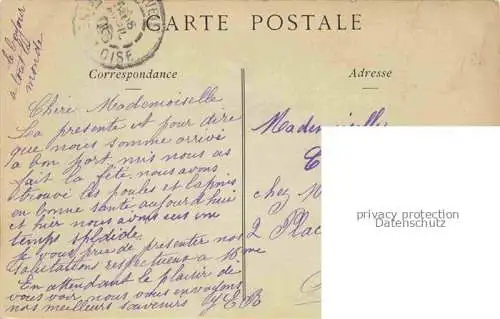 CARTE POSTALE
Correspondance
Adresse
OISE
a tous le
monde
Cheri Mademoiselle
La presente et pour dire
que nous somme arrivé
a bon port, mis nous as
fait la fête. nous avons
trouvé les poules et lapins
en bonne santé aujourd hui
et hier nous avons eus un
temps splédide.
Je vous prie de presenter nos
salutations respectueux a
En attendant le plaisir de
vous voir nous vous envoyons
nos meilleurs souvenirs
Mademoiselle
chez M
2 Plac
privacy protection
Datenschutz